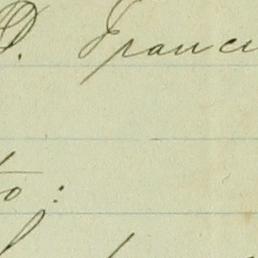 D. Franci
to: